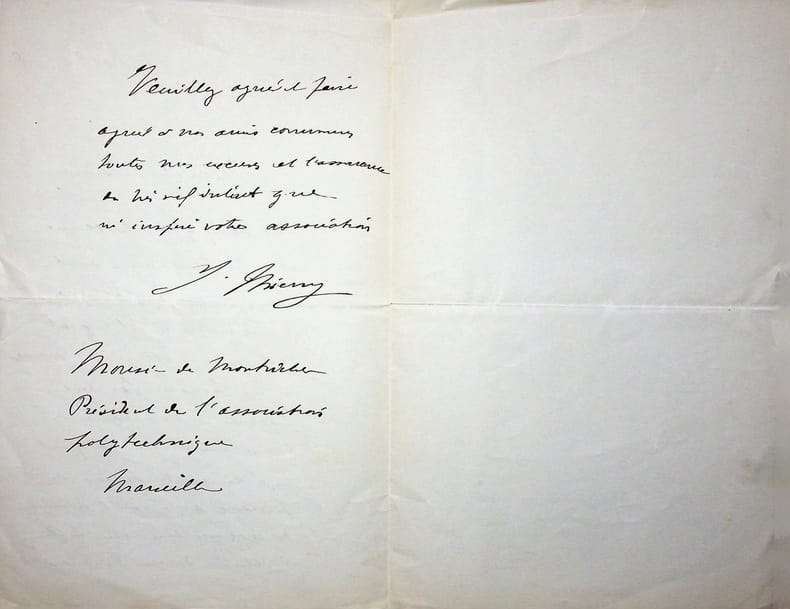 Veuillez agréer et faire
agréer à nos amis communs
toutes mes excuses et l'assurance
du vif intérêt que
m'inspire votre association
J. Thierry
Monsieur de Montricher
Président de l'association
polytechnique
Marseille